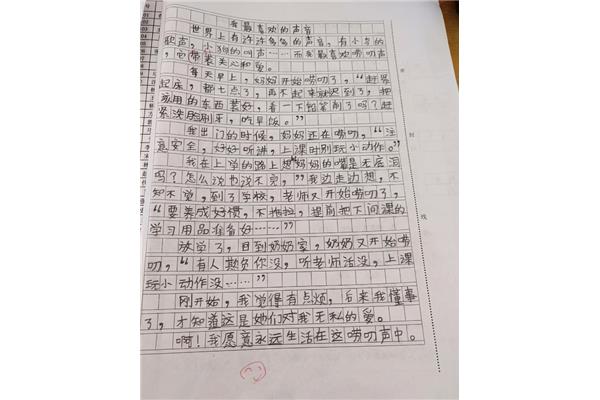 我最喜欢的声音
世界上有许许多多的声音,有小鸟的
歌声,小狗的叫声……而我最喜欢唠叨声
,它带着关心和爱。
每天早上,妈妈开始唠叨了,“赶紧
起床,都七点了,再不起来就迟到了,把
该用的东西装好,看一下铅笔削了吗?赶
紧洗脸刷牙,吃早饭。”
我出门的时候,妈妈还在唠叨,“注
意安全,好好听讲,上课时别玩小动作。”
我在上学的路上想“妈妈的嘴是无底洞
吗?怎么说也说不完,”我边走边想,不
知不觉,到了学校,老师又开始唠叨了,
“要养成好惯,不拖拉,提前把下问课的
学习用品准备好……”
放学了,回到奶奶家,奶奶又开始唠
叨,“有人欺负你没,听老师话没,上课
玩小动作没……”
刚开始,我觉得有点烦,后来我懂事
了,才知着这是她们对我无私的爱。
啊!我愿意永远生活在这唠叨声中。
封
线